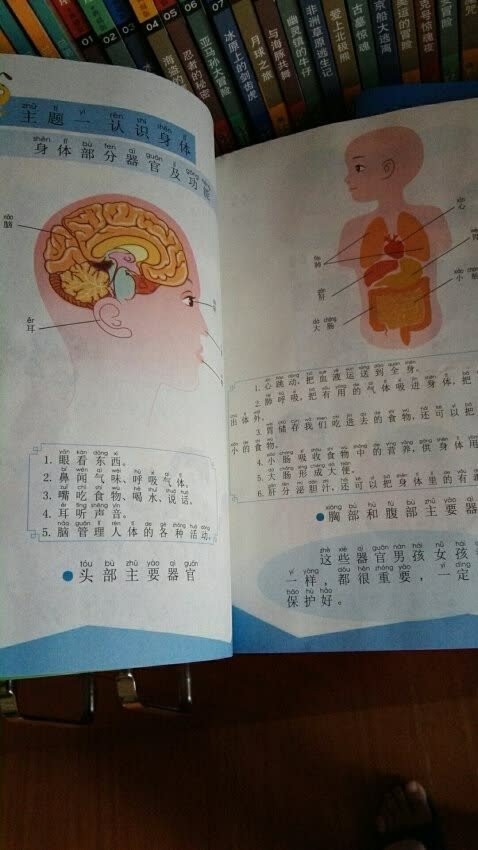 01
02
03
04
05
06
07
忍者的秘密
亚马孙大冒险
冰原上的剑齿虎
月球之旅
与海豚共舞
幽灵镇的牛仔
非洲草原逃生记
爱上北极熊
古墓惊魂
主题一 认识身体
身体部分器官及功能
脑
耳
1. 眼看东西。
2. 鼻闻气味、呼吸气体。
3. 嘴吃食物、喝水、说话。
4. 耳听声音。
5. 脑管理人体的各种活动。
头部主要器官
心
肺
胃
肝
小肠
大肠
1. 心跳动，把血液运送到全身。
2. 肺呼吸，把有用的气体吸进身体，把
出体外。
3. 胃储存我们吃进去的食物，还可以把
小的食物。
4. 小肠吸收食物中的营养，供身体用
5. 大肠形成大便。
6. 肝分泌胆汁，还可以把身体里的有毒
胸部和腹部主要器
这些器官男孩女孩
一样，都很重要，一定
保护好。